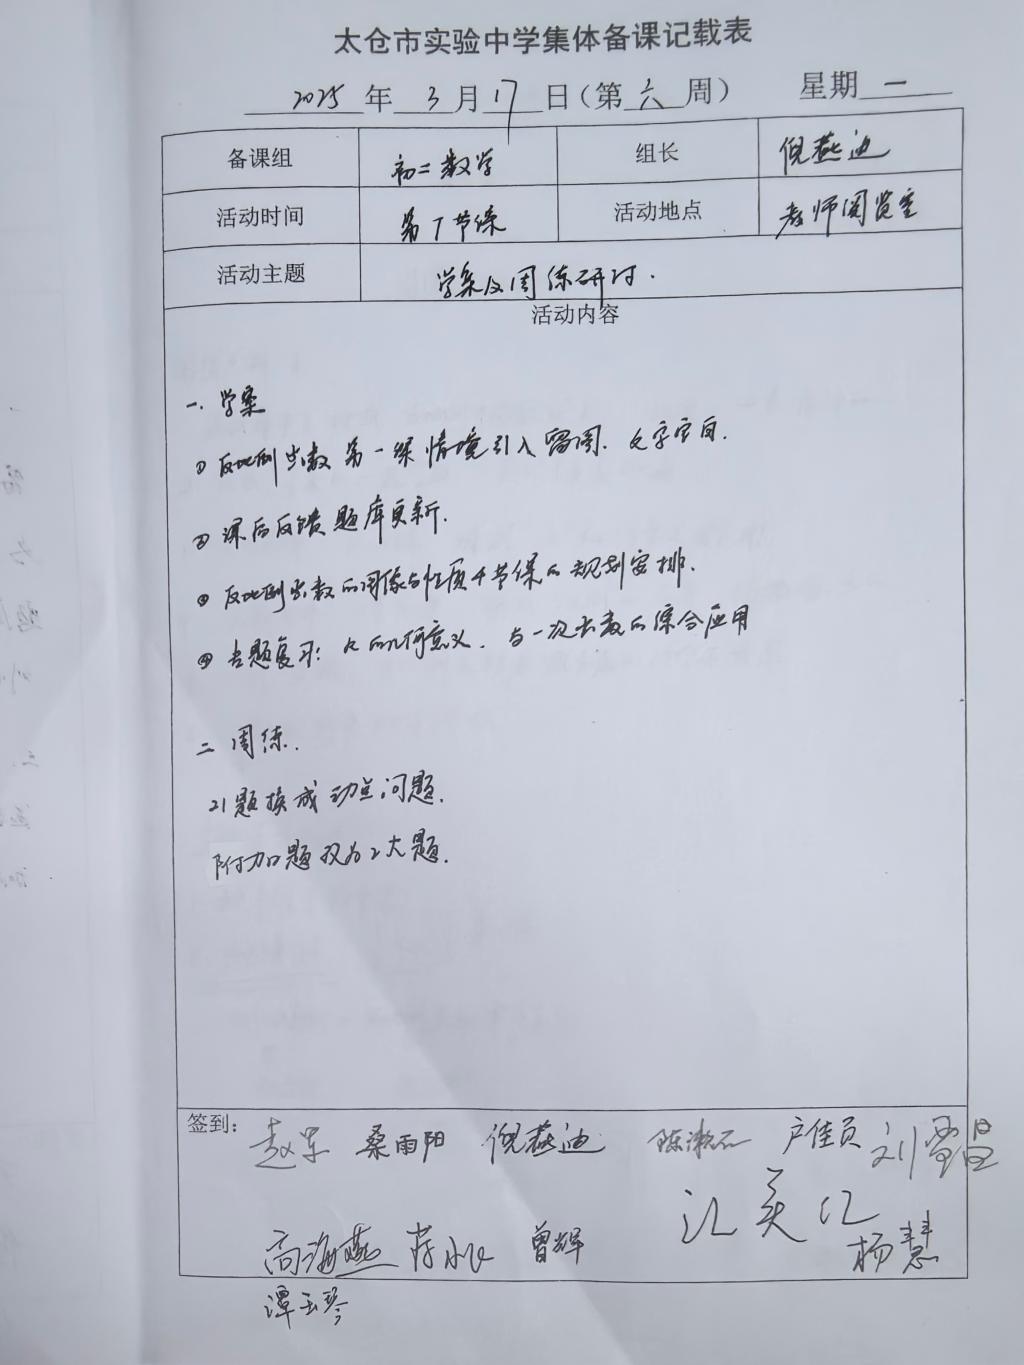 太仓市实验中学集体备课记载表
2025 年 3 月 17 日（第 六 周） 星期 一
备课组 初二数学 组长 倪燕迪
活动时间 第7节课 活动地点 教师阅览室
活动主题 学案及周练研讨.
活动内容
一. 学案
① 反比例函数第一课情境引入留周. 文字空白.
② 课后反馈题库更新.
③ 反比例函数的图像与性质4节课的规划安排.
④ 专题复习: K的几何意义. 与一次函数的综合应用
二 周练.
21题换成动点问题.
附加题改为2大题.
签到: 赵军 桑雨阳 倪燕迪 陈漱石 卢佳员 刘雪昌
江美亿
高海燕 曾辉 杨慧
谭玉琴